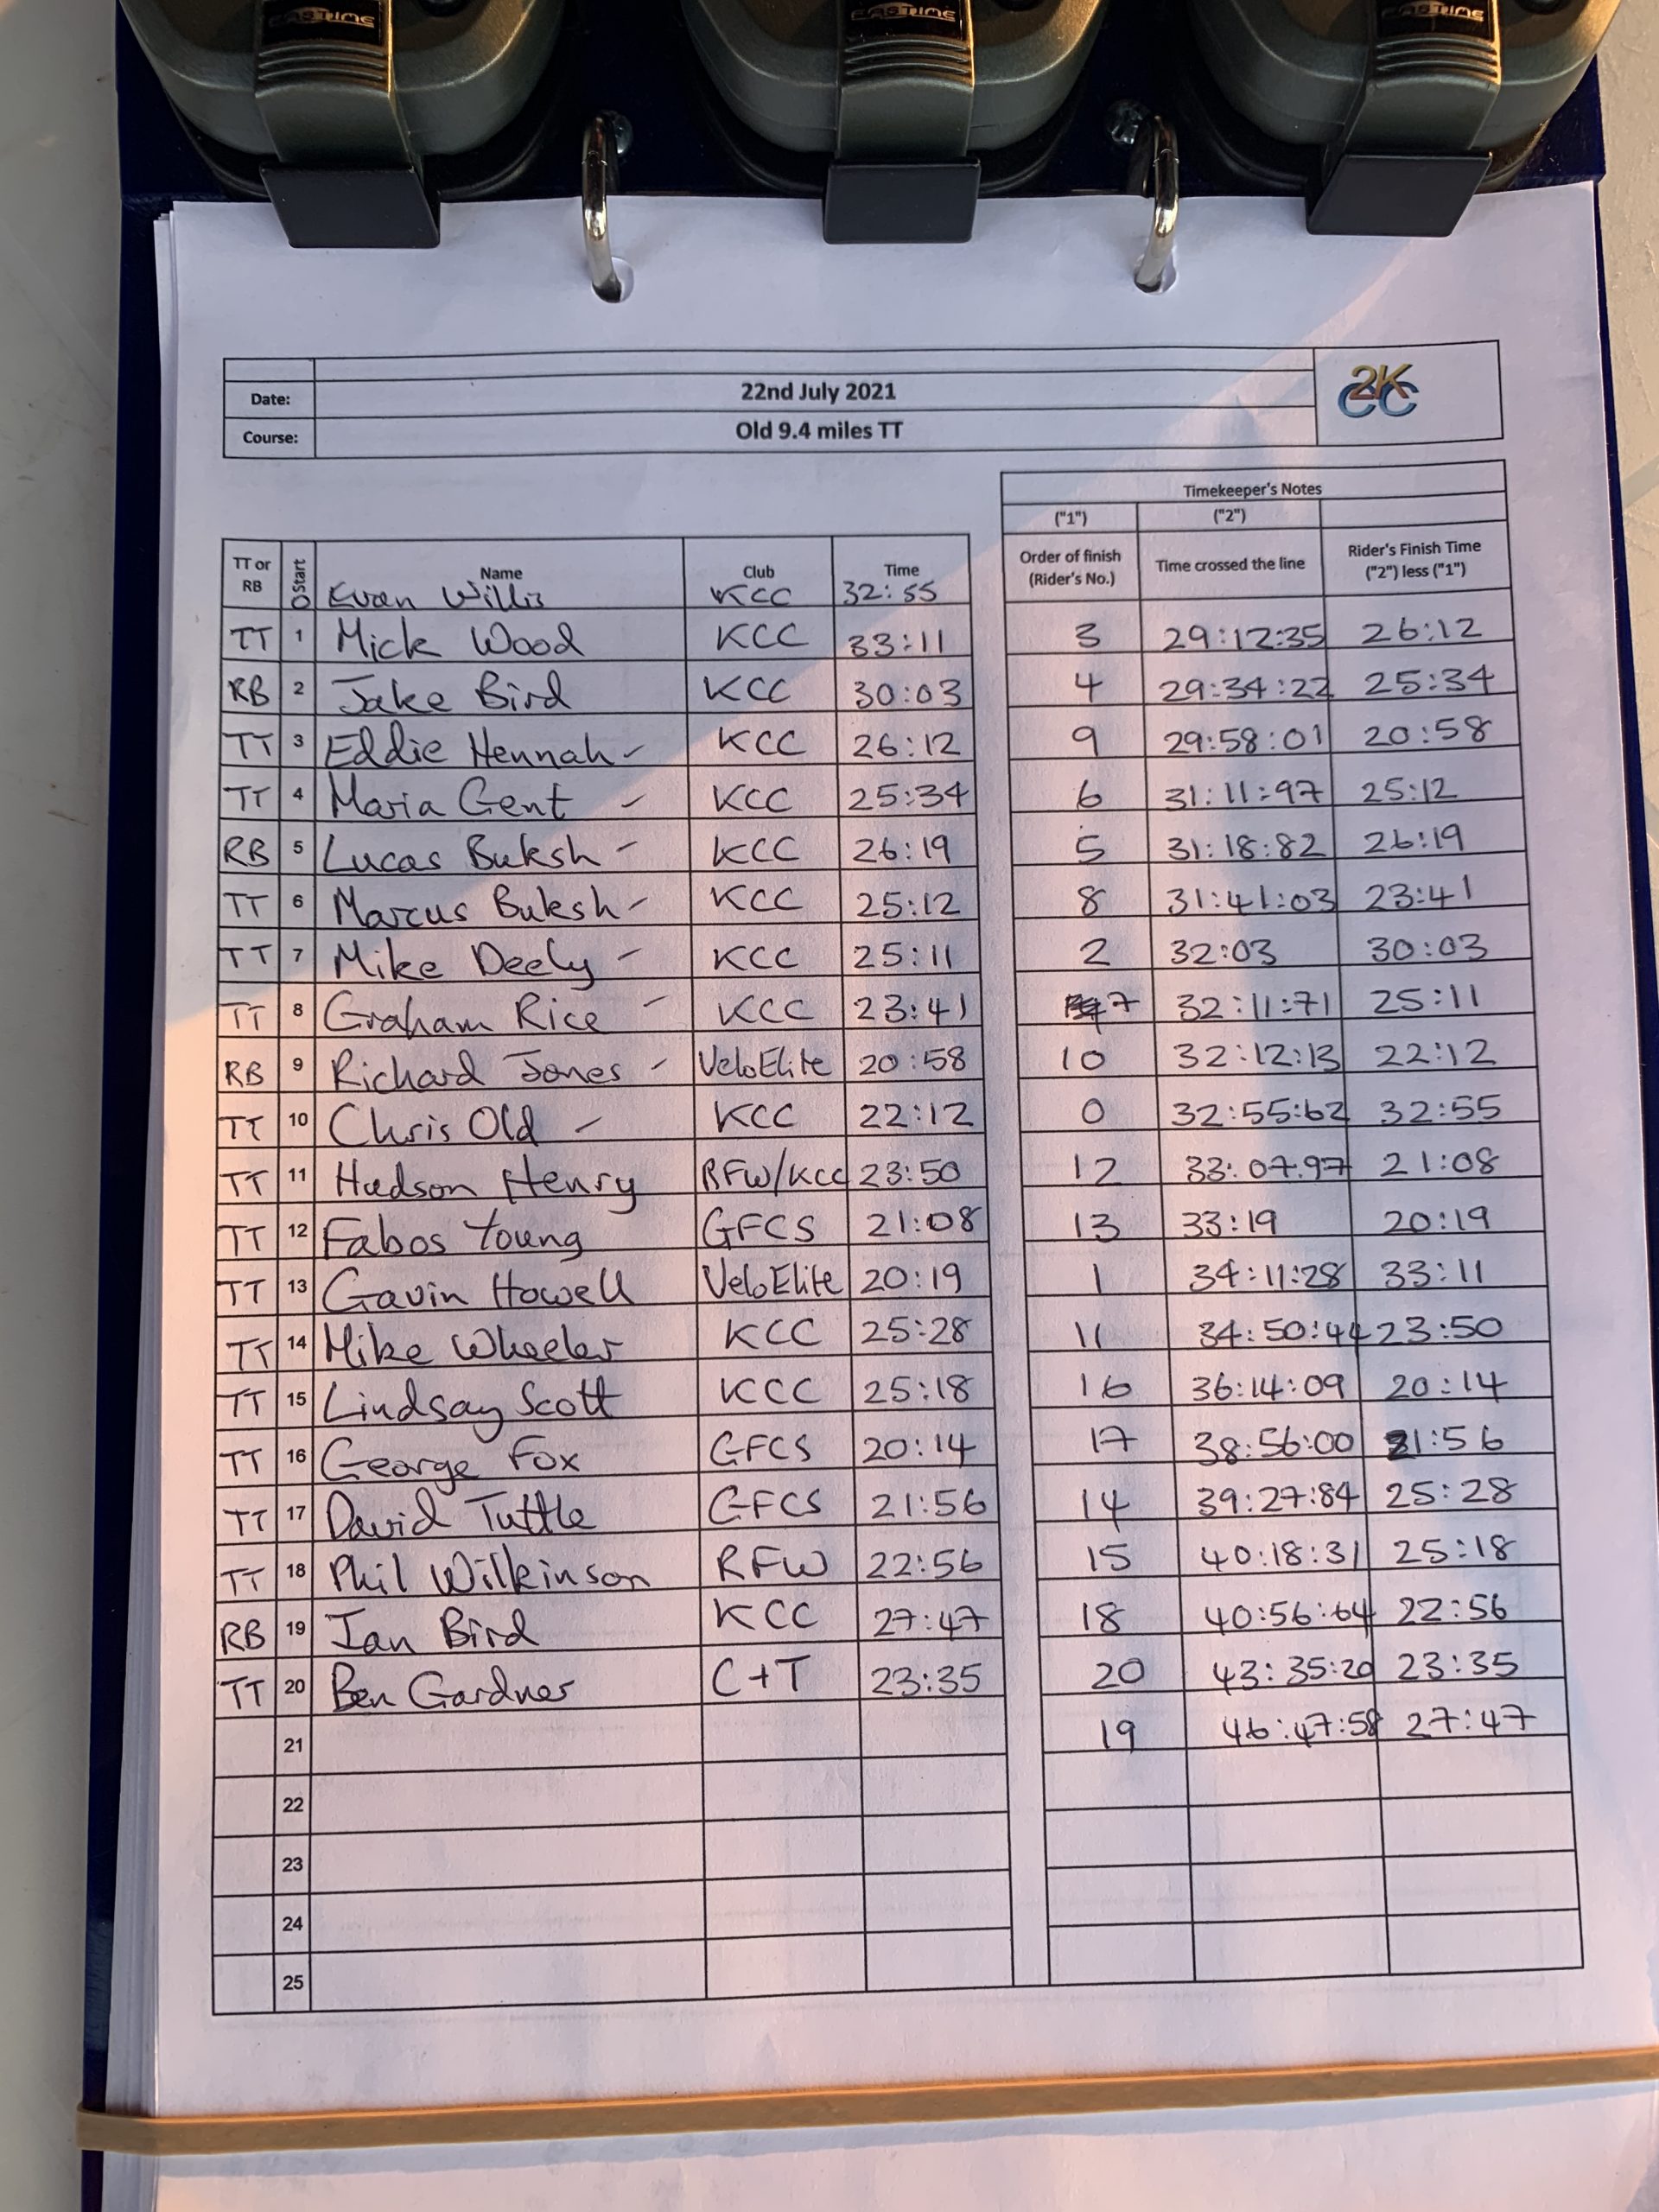 EASTIME EASTIME EASTIME
Date: 22nd July 2021
Course: Old 9.4 miles TT
2KCC
Timekeeper's Notes
("1") ("2")
TT or RB Start Name Club Time Order of finish (Rider's No.) Time crossed the line Rider's Finish Time ("2") less ("1")
0 Evan Willis KCC 32:55
TT 1 Mick Wood KCC 33:11 3 29:12:35 26:12
RB 2 Jake Bird KCC 30:03 4 29:34:22 25:34
TT 3 Eddie Hennah - KCC 26:12 9 29:58:01 20:58
TT 4 Maria Gent - KCC 25:34 6 31:11:97 25:12
RB 5 Lucas Buksh - KCC 26:19 5 31:18:82 26:19
TT 6 Marcus Buksh - KCC 25:12 8 31:41:03 23:41
TT 7 Mike Deely - KCC 25:11 2 32:03 30:03
TT 8 Graham Rice - KCC 23:41 7 32:11:71 25:11
RB 9 Richard Jones - VeloElite 20:58 10 32:12:13 22:12
TT 10 Chris Old - KCC 22:12 0 32:55:62 32:55
TT 11 Hudson Henry RFW/KCC 23:50 12 33:07:97 21:08
TT 12 Fabos Young GFCS 21:08 13 33:19 20:19
TT 13 Gavin Howell VeloElite 20:19 1 34:11:28 33:11
TT 14 Mike Wheeler KCC 25:28 11 34:50:44 23:50
TT 15 Lindsay Scott KCC 25:18 16 36:14:09 20:14
TT 16 George Fox GFCS 20:14 17 38:56:00 21:56
TT 17 David Tuttle GFCS 21:56 14 39:27:84 25:28
TT 18 Phil Wilkinson RFW 22:56 15 40:18:31 25:18
RB 19 Ian Bird KCC 27:47 18 40:56:64 22:56
TT 20 Ben Gardner C+T 23:35 20 43:35:20 23:35
21 19 46:47:58 27:47
22
23
24
25